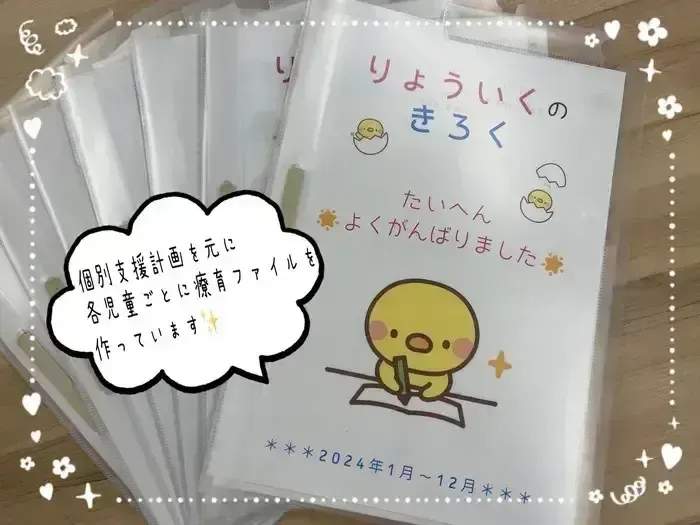 りょういくの
きろく
たいへん
よくがんばりました
個別支援計画を元に
各児童ごとに療育ファイルを
作っています
***2024年1月～12月***
り